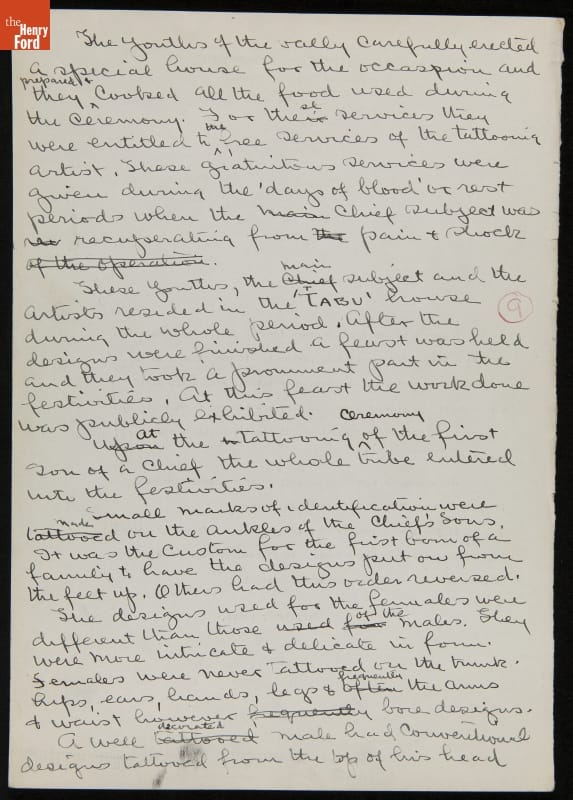 the
Henry
Ford
The youths of the vally carefully erected
a special house for the occaspion and
prepared &
they cooked all the food used during
the ceremony. For these services they
were entitled to the free services of the tattooing
artist. These gratuitous services were
given during the 'days of blood' or rest
periods when the main Chief subject was
recuperating from the pain & shock
of the operation.
main
These youths, the Chief subject and the
artists resided in the 'TABU' house
9
during the whole period. After the
designs were finished a feast was held
and they took a prominent part in the
festivities. At this feast the work done
was publicly exhibited.
ceremony
Upon At the tattooing of the first
son of a Chief the whole tribe entered
into the festivities.
Small marks of identification were
made
tattooed on the ankles of the Chief's Sons.
It was the custom for the first born of a
family to have the designs put on from
the feet up. Others had this order reversed.
The designs used for the females were
different than those used for of the males. They
were more intricate & delicate in form.
Females were never tattooed on the trunk.
frequently
Lips, ears, hands, legs & often the arms
& waist however frequently bore designs.
decorated
A well tattooed male had conventional
designs tattooed from the top of his head